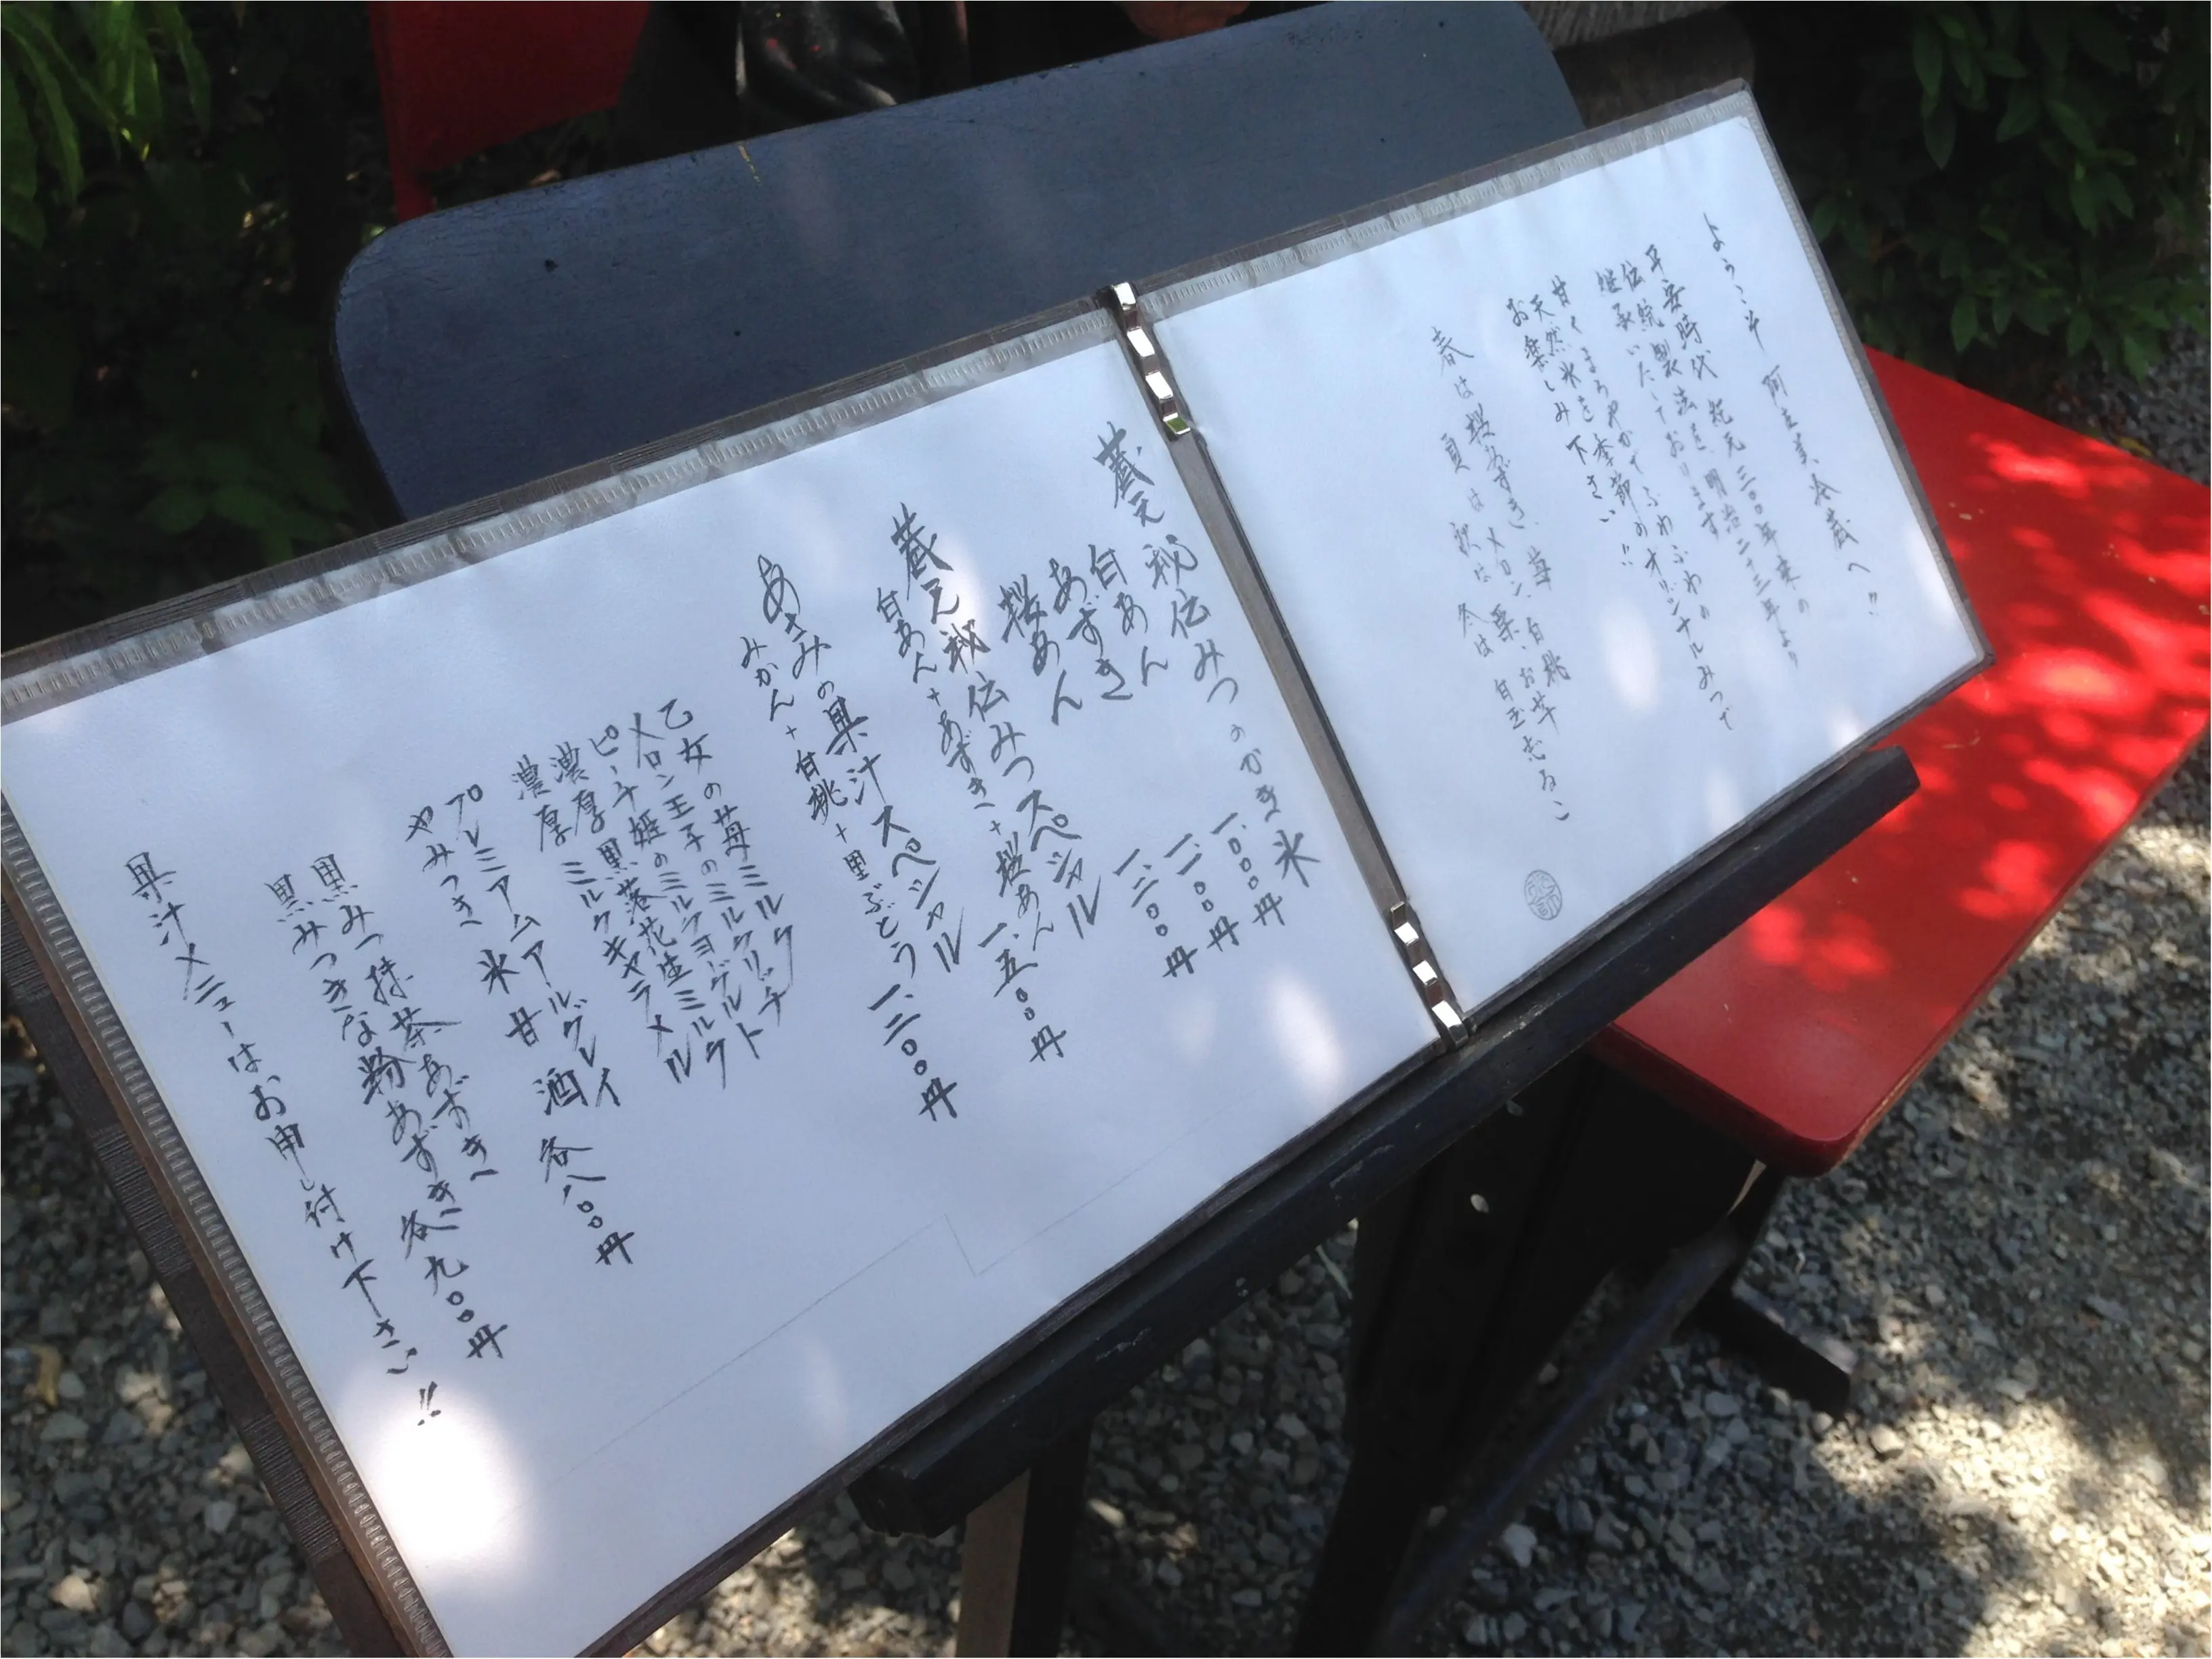 ようこそ 阿左美冷蔵へ!!
平安時代 紀元三〇〇年来の
伝統製法を、明治二十三年より
継承いたしております
甘くまろやかでふわふわの
天然氷を季節のオリジナルみつで
お楽しみ下さい!!
春は桜あずき、苺、白桃
夏はメロン、
秋は栗、お芋
冬は
蔵元秘伝みつのかき氷
白あん 一、〇〇〇円
あずき 一、一〇〇円
桜あん 一、二〇〇円
蔵元秘伝みつスペシャル
白あん+あずき+桜あん 一、五〇〇円
あさみの果汁スペシャル
みかん+白桃+黒ぶどう 一、二〇〇円
乙女の苺ミルク
メロン王子のミルクリッチ
ピーチ姫のミルクヨーグルト
濃厚 黒落花生ミルク
濃厚 ミルクキャラメル
プレミアムアールグレイ
やみつき 氷甘酒 各八〇〇円
黒みつ抹茶あずき
黒みつきな粉あずき 各九〇〇円
果汁メニューはお申し付け下さい!!